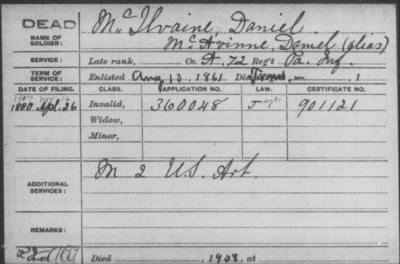 DEAD
NAME OF SOLDIER: McIlvaine, Daniel.
McAvinne, Daniel (alias)
SERVICE: Late rank, Co. A, 72 Reg't Pa. Inf.
TERM OF SERVICE: Enlisted Aug 13, 1861. Dis , 1
DATE OF FILING. CLASS. APPLICATION NO. LAW. CERTIFICATE NO.
1880 Apl. 26 Invalid, 360048 901121
Widow,
Minor,
ADDITIONAL SERVICES: M 2 U.S. Art.
REMARKS:
Died , 1908, at